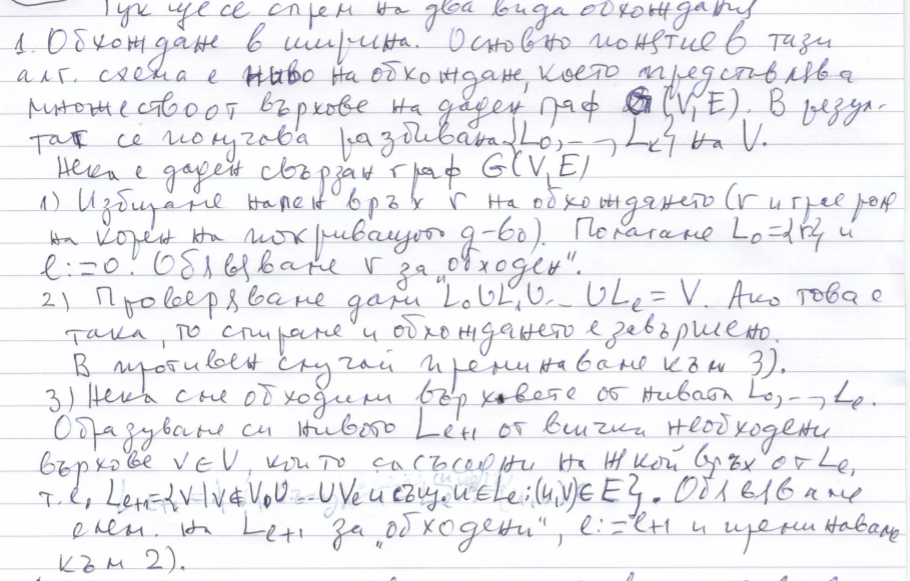 Тук ще се спрем на два вида обхождания
1. Обхождане в ширина. Основно понятие в тази
алг. схема е ниво на обхождане, което представлява
множество от върхове на даден граф G(V,E). В резул-
тат се получава разбиване {L₀,--,Lₖ} на V.
Нека е даден свързан граф G(V,E)
1) Избираме начален връх r на обхождането (r играе роля
на корен на покриващото д-во). Полагаме L₀={r} и
l:=0. Обявяваме r за „обходен".
2) Проверяваме дали L₀UL₁U-- ULₑ=V. Ако това е
така, то спираме и обхождането е завършено.
В противен случай преминаваме към 3).
3) Нека сме обходили върховете от нивата L₀,--,Lₑ.
Образуваме си нивото Lₑ₊₁ от всички необходени
върхове v∈V, които са съседни на някой връх от Lₑ,
т.е. Lₑ₊₁={v|v∉V₀U--UVₑ и същ. u∈Lₑ:(u,v)∈E}. Обявяваме
елем. на Lₑ₊₁ за „обходени", l:=l+1 и преминаваме
към 2).